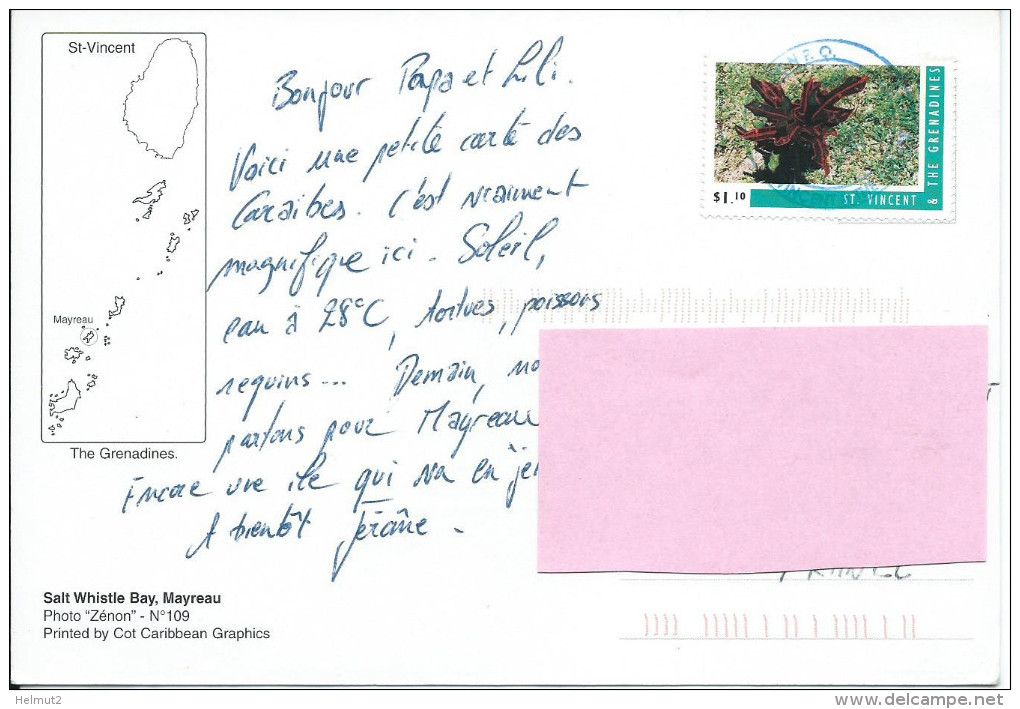 St-Vincent
Mayreau
The Grenadines.
Bonjour Papa et Lili.
Voici une petite carte des
Caraïbes. C'est vraiment
magnifique ici. Soleil,
eau à 28°C, tortues, poissons
requins... Demain, no
partons pour Mayreau
Encore une île qui va en
A bientôt Jérôme.
$1.10
ST. VINCENT
& THE GRENADINES
FRANCE
Salt Whistle Bay, Mayreau
Photo "Zénon" - N°109
Printed by Cot Caribbean Graphics
Helmut2
www.delcampe.net